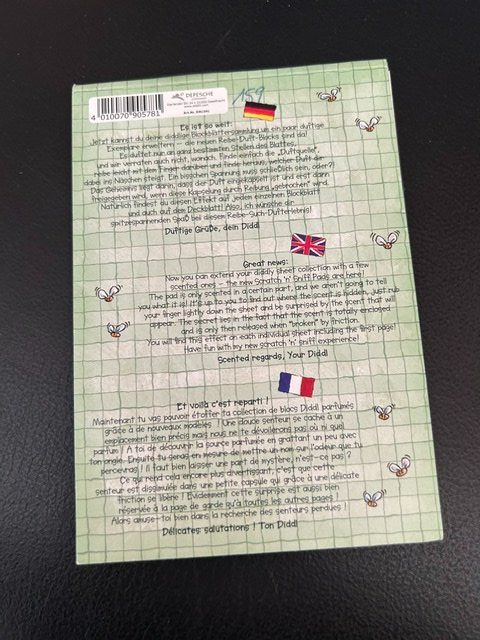 DEPESCHE
4 010070 905781
159
Es ist so weit:
Jetzt kannst du deine diddlige Blockblättersammlung um ein paar duftige
Exemplare erweitern – die neuen Reibe-Duft-Blocks sind da!
Es duftet nun an ganz bestimmten Stellen des Blattes,
und wir verraten auch nicht, wonach. Finde einfach die „Duftquelle",
reibe leicht mit dem Finger darüber und finde heraus, welcher Duft dir
dabei ins Näschen steigt. Ein bisschen Spannung muss schließlich sein, oder?!
Das Geheimnis liegt darin, dass der Duft eingekapselt ist und erst dann
freigegeben wird, wenn diese Kapselung durch Reibung „gebrochen" wird.
Natürlich findest du diesen Effekt auf jedem einzelnen Blockblatt
und auch auf dem Deckblatt! Also, ich wünsche dir
spitzespannenden Spaß bei diesem Reibe-Such-Dufterlebnis!
Duftige Grüße, dein Diddl
Great news:
Now you can extend your diddly sheet collection with a few
scented ones – the new Scratch 'n' Sniff Pads are here!
The pad is only scented in a certain part, and we aren't going to tell
you what it is! It's up to you to find out where the scent is hidden, just rub
your finger lightly down the sheet and be surprised by the scent that will
appear. The secret lies in the fact that the scent is totally enclosed
and is only then released when "broken" by friction.
You will find this effect on each individual sheet including the first page!
Have fun with my new scratch 'n' sniff experience!
Scented regards, Your Diddl
Et voilà c'est reparti !
Maintenant tu vas pouvoir étoffer ta collection de blocs Diddl parfumés
grâce à de nouveaux modèles ! Une douce senteur se cache à un
emplacement bien précis mais nous ne te dévoilerons pas où ni quel
parfum ! A toi de découvrir la source parfumée en grattant un peu avec
ton ongle. Ensuite tu seras en mesure de mettre un nom sur l'odeur que tu
percevras ! Il faut bien laisser une part de mystère, n'est-ce pas ?
Ce qui rend cela encore plus divertissant, c'est que cette
senteur est dissimulée dans une petite capsule qui grâce à une délicate
friction se libère ! Evidemment cette surprise est aussi bien
réservée à la page de garde qu'à toutes les autres pages !
Alors amuse-toi bien dans la recherche des senteurs perdues !
Délicates salutations ! Ton Diddl